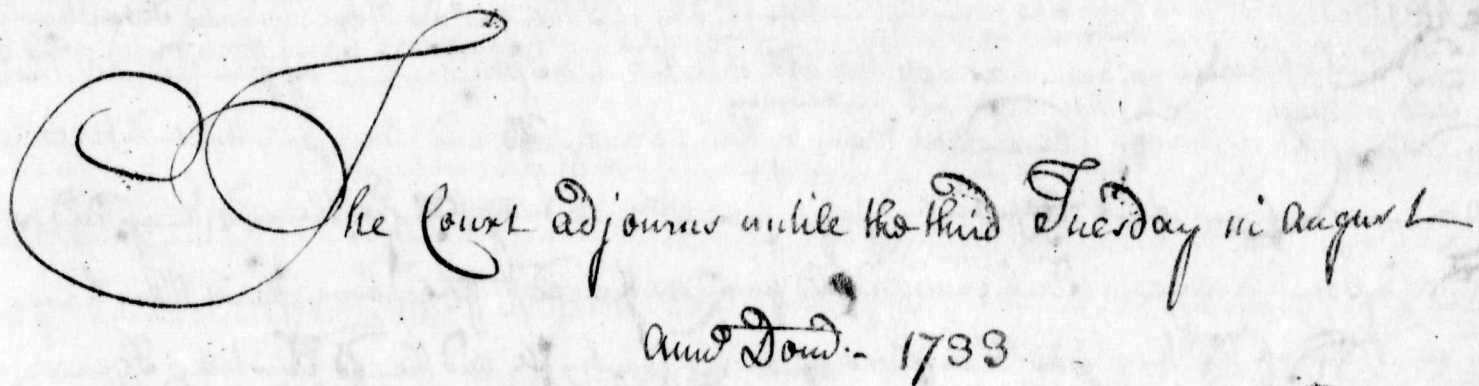 The Court adjourns untile the third Tuesday in august
Anno Domo:- 1733